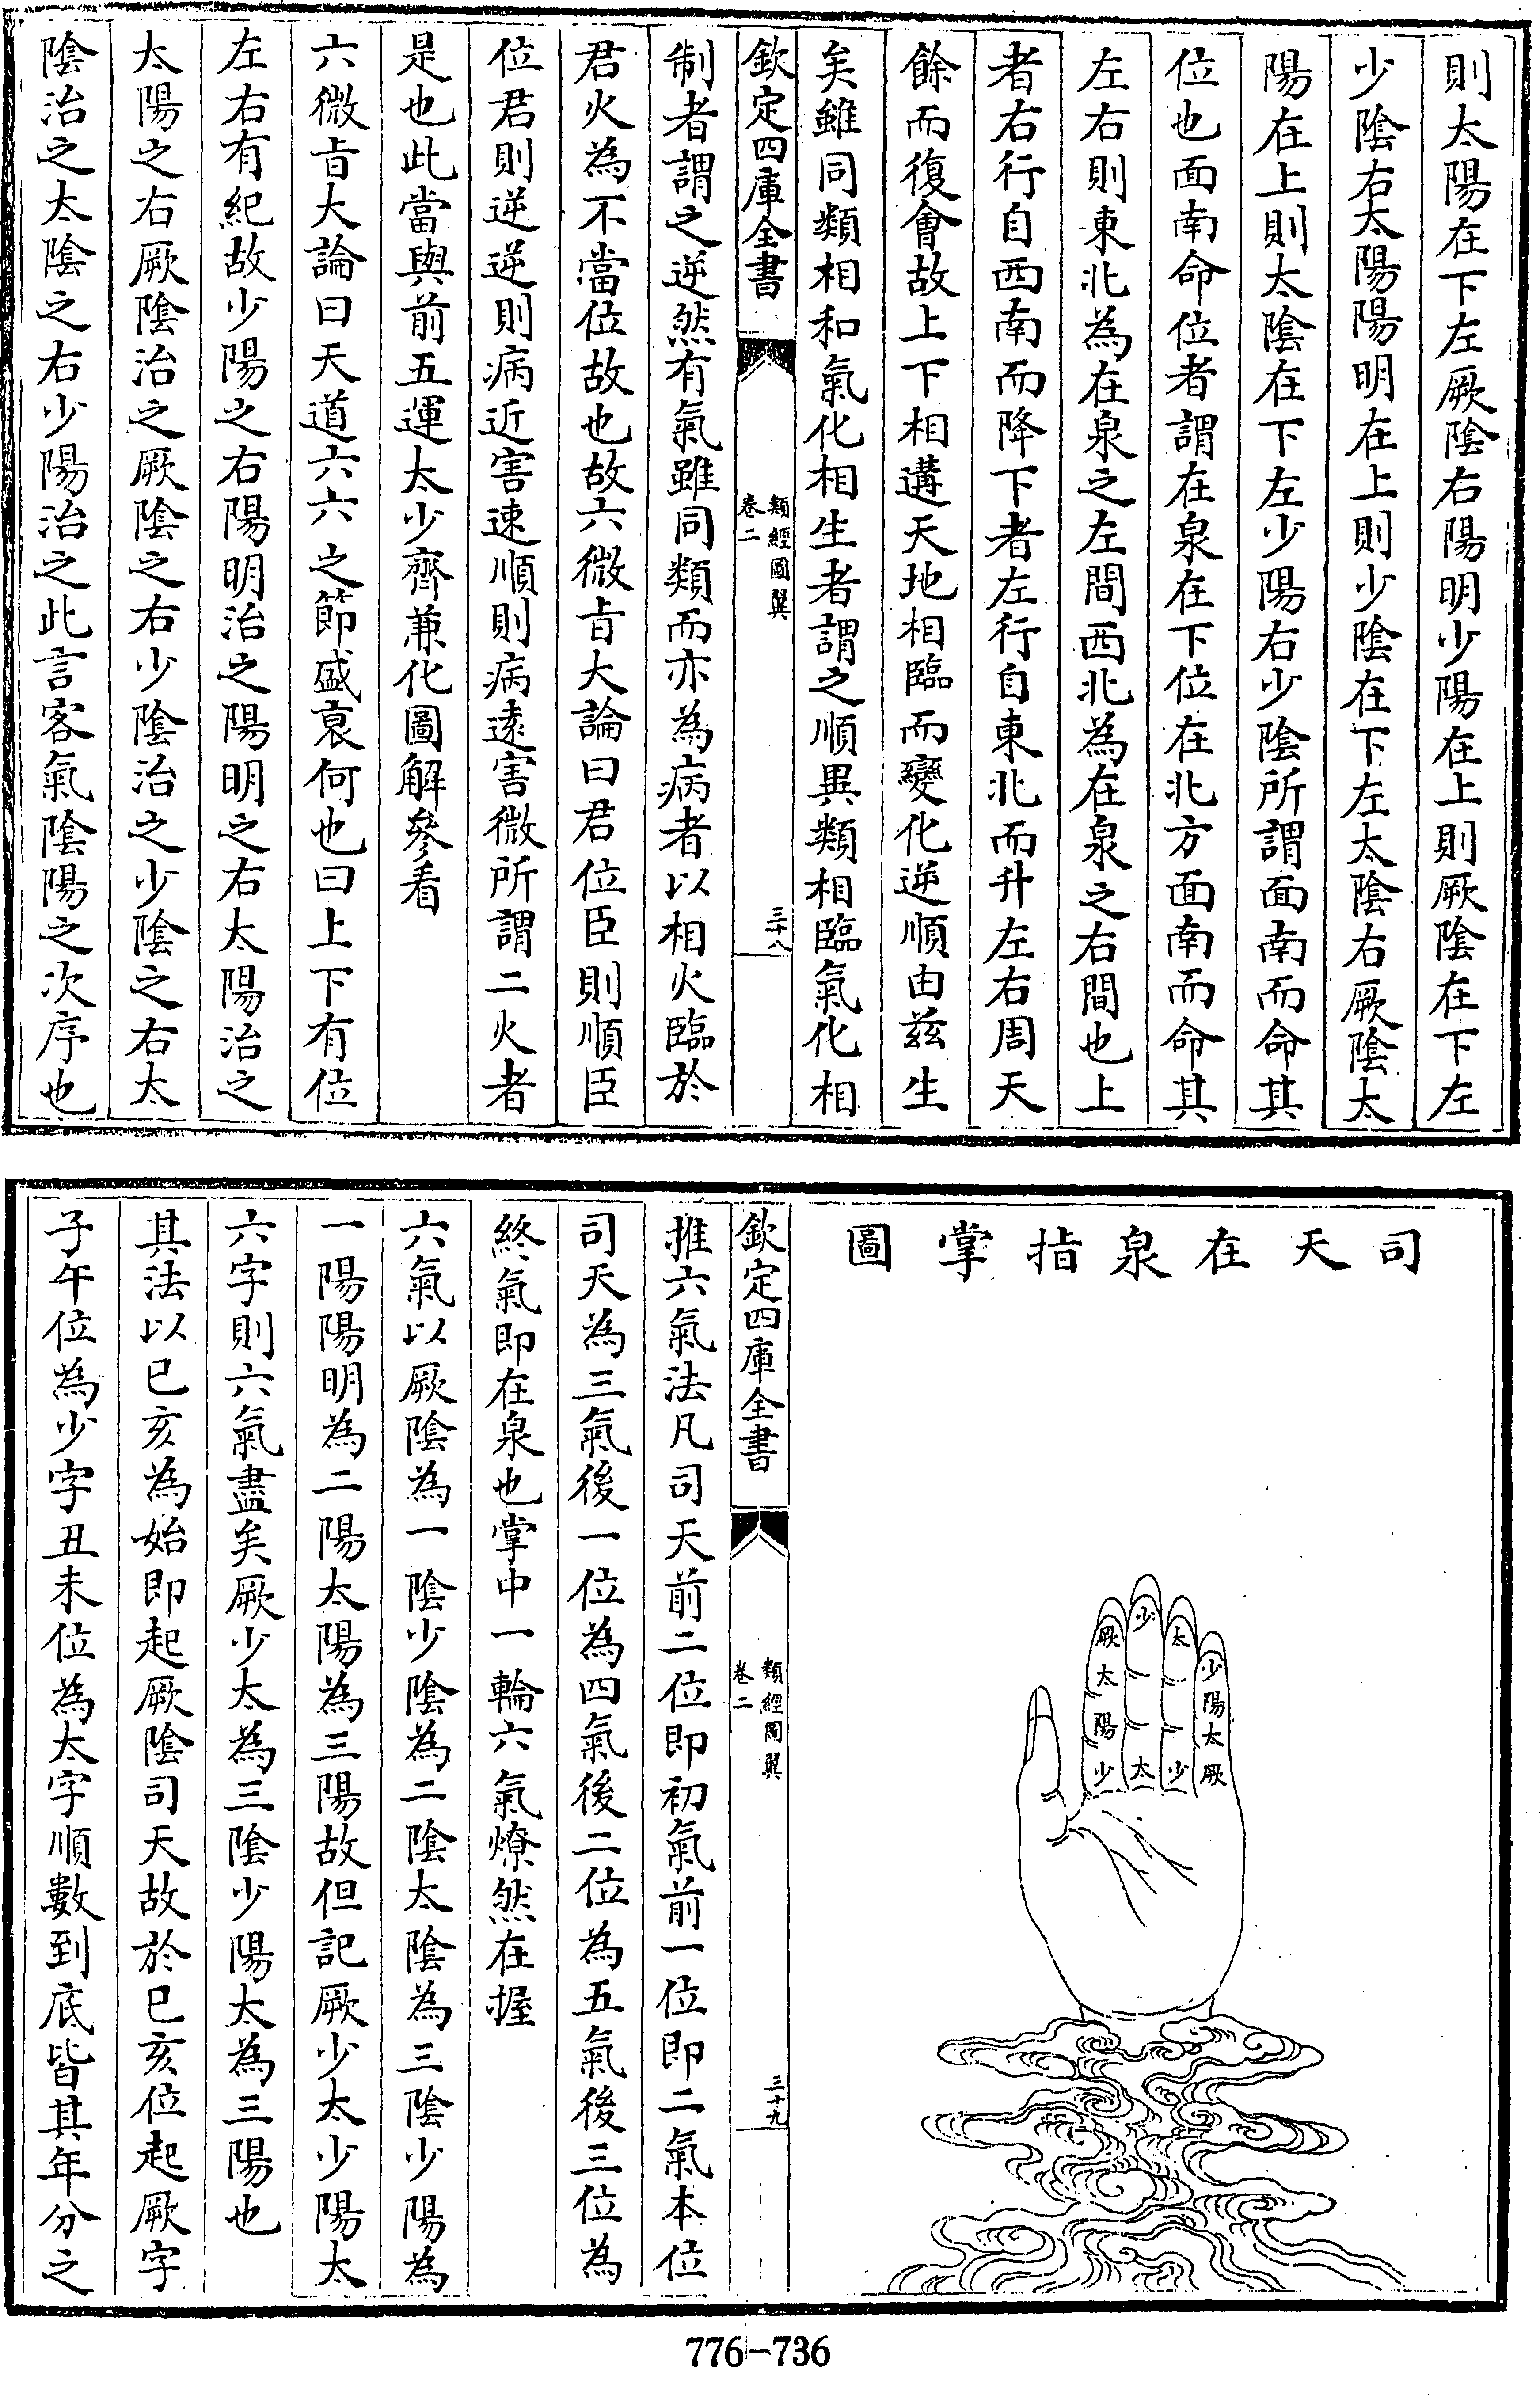 則太陽在下左厥陰右陽明少陽在上則厥陰在下左
少陰右太陽陽明在上則少陰在下左太陰右厥陰太
陽在上則太陰在下左少陽右少陰所謂面南而命其
位也面南命位者謂在泉在下位在北方面南而命其
左右則東北為在泉之左間西北為在泉之右間也上
者右行自西南而降下者左行自東北而升左右周天
餘而復會故上下相遘天地相臨而變化逆順由茲生
矣雖同類相和氣化相生者謂之順異類相臨氣化相
欽定四庫全書
類經圖翼
卷二
三十八
制者謂之逆然有氣雖同類而亦為病者以相火臨於
君火為不當位故也故六微旨大論曰君位臣則順臣
位君則逆逆則病近害速順則病遠害微所謂二火者
是也此當與前五運太少齊兼化圖解參看
六微旨大論曰天道六六之節盛衰何也曰上下有位
左右有紀故少陽之右陽明治之陽明之右太陽治之
太陽之右厥陰治之厥陰之右少陰治之少陰之右太
陰治之太陰之右少陽治之此言客氣陰陽之次序也
司天在泉指掌圖
厥太陽少
少太
太少
少陽太厥
欽定四庫全書
類經圖翼
卷二
三十九
推六氣法凡司天前二位即初氣前一位即二氣本位
司天為三氣後一位為四氣後二位為五氣後三位為
終氣即在泉也掌中一輪六氣燎然在握
六氣以厥陰為一陰少陰為二陰太陰為三陰少陽為
一陽陽明為二陽太陽為三陽故但記厥少太少陽太
六字則六氣盡矣厥少太為三陰少陽太為三陽也
其法以巳亥為始即起厥陰司天故於巳亥位起厥字
子午位為少字丑未位為太字順數到底皆其年分之
776-736